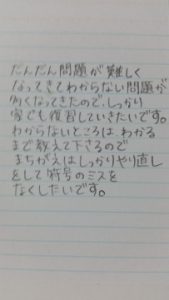 だんだん問題が難しく
なってきてわからない問題が
多くなってきたので、しっかり
家でも復習していきたいです。
わからないところは、わかる
まで教えて下さるので
まちがえはしっかりやり直し
をして符号のミスを
なくしたいです。